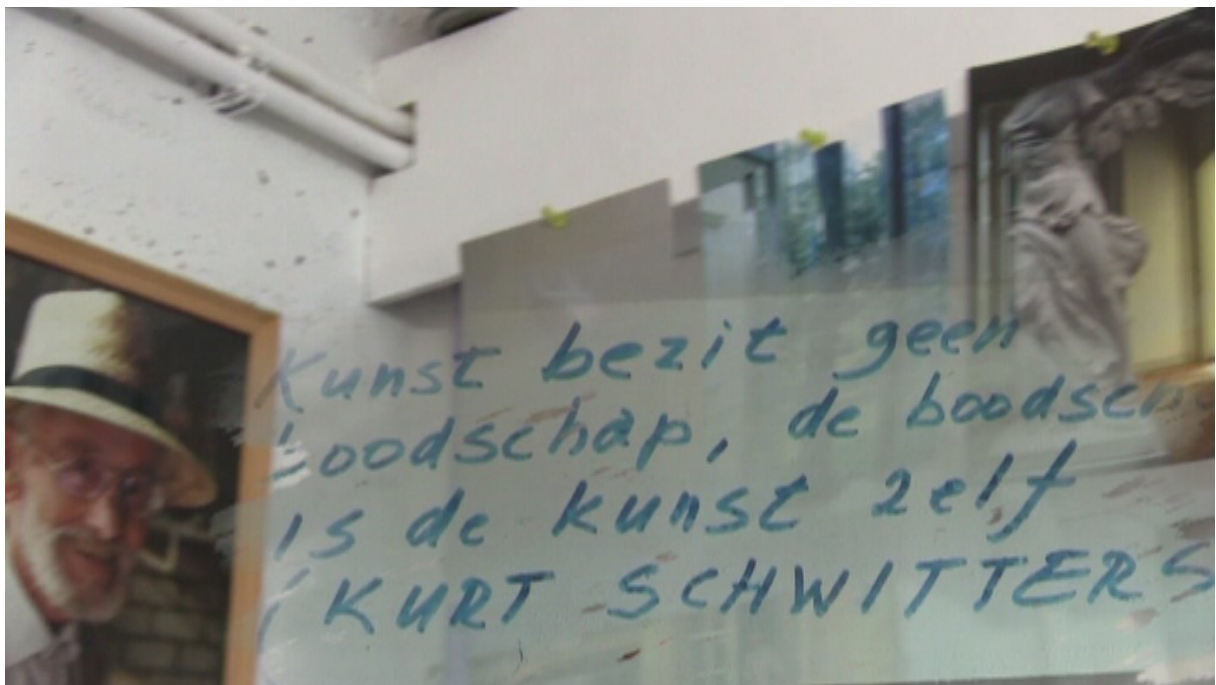 Kunst bezit geen
boodschap, de boodsch
is de kunst zelf
( KURT SCHWITTERS